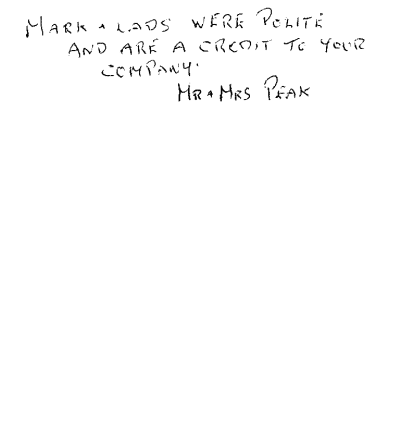 MARK + LADS WERE POLITE
AND ARE A CREDIT TO YOUR
COMPANY.
MR + MRS PEAK